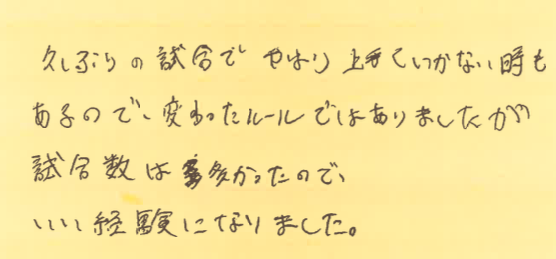 久しぶりの試合で やはり上手くいかない時も
あるので、変わったルールではありましたが
試合数は多かったので、
いい経験になりました。